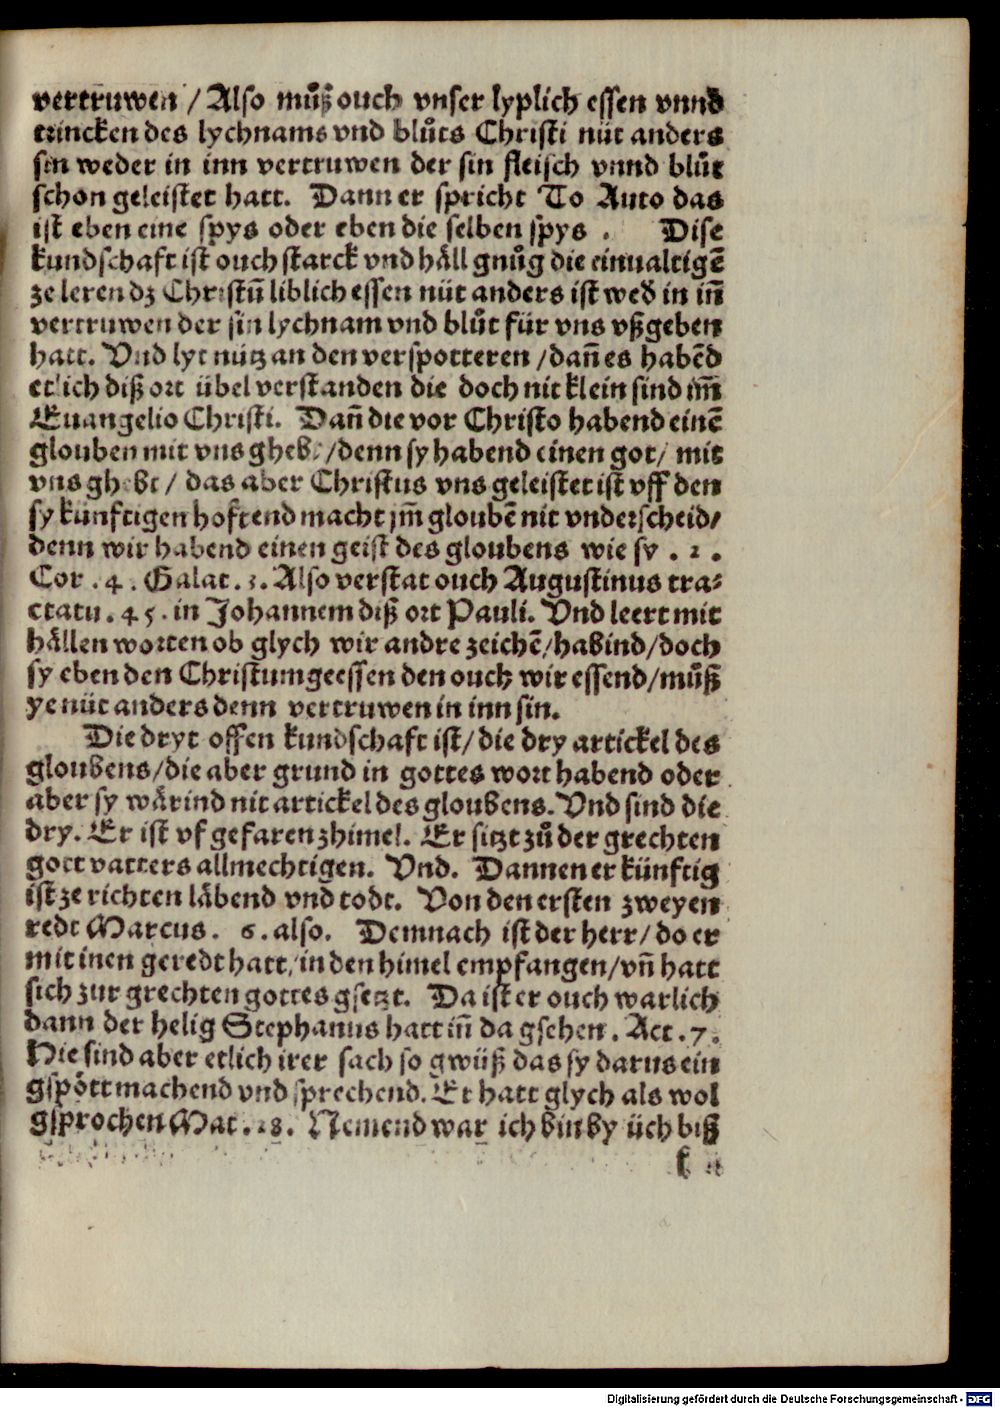 vertruwen / Also muͦß ouch vnser lyplich essen vnnd
trincken des lychnams vnd bluͦts Christi nüt anders
sin weder in inn vertruwen der sin fleisch vnnd bluͦt
schon geleistet hatt. Dann er spricht To Auto das
ist eben eine spys oder eben die selben spys . Dise
kundschaft ist ouch starck vnd häll gnuͦg die einualtigē
ze leren dz Christū liblich essen nüt anders ist wed in iñ
vertruwen der sin lychnam vnd bluͦt für vns vßgeben
hatt. Vnd lyt nütz an den verspotteren / dañ es habēd
etlich diß ort übel verstanden die doch nit klein sind im̄
Euangelio Christi. Dañ die vor Christo habend einē
glouben mit vns ghebt / denn sy habend einen got / mit
vns ghebt / das aber Christus vns geleistet ist vff den
sy künftigen hoftend macht jm̄ gloubē nit vnderscheid /
denn wir habend einen geist des gloubens wie sy . 2 .
Cor . 4 . Galat. 3. Also verstat ouch Augustinus tra⸗
ctatu . 45 . in Johannem diß ort Pauli. Vnd leert mit
hällen worten ob glych wir andre zeichē / habind / doch
sy eben den Christum geessen den ouch wir essend / muͦß
ye nüt anders denn vertruwen in inn sin.
Die dryt offen kundschaft ist / die dry artickel des
gloubens / die aber grund in gottes wort habend oder
aber sy wärind nit artickel des gloubens. Vnd sind die
dry. Er ist vf gefaren zhimel. Er sitzt zuͦ der grechten
gott vatters allmechtigen. Vnd. Dannen er künftig
ist ze richten läbend vnd todt. Von den ersten zweyen
redt Marcus . 6 . also. Demnach ist der herr / do er
mit inen geredt hatt / in den himel empfangen / vñ hatt
sich zur grechten gottes gsetzt. Da ist er ouch warlich
dann der helig Stephanus hatt iñ da gsehen . Act . 7 .
Hie sind aber etlich irer sach so gwüß das sy darus ein
gspött machend vnd sprechend. Er hatt glych als wol
gsprochen Mat . 28 . Nemend war ich bin by üch biß
k
Digitalisierung gefördert durch die Deutsche Forschungsgemeinschaft - DFG